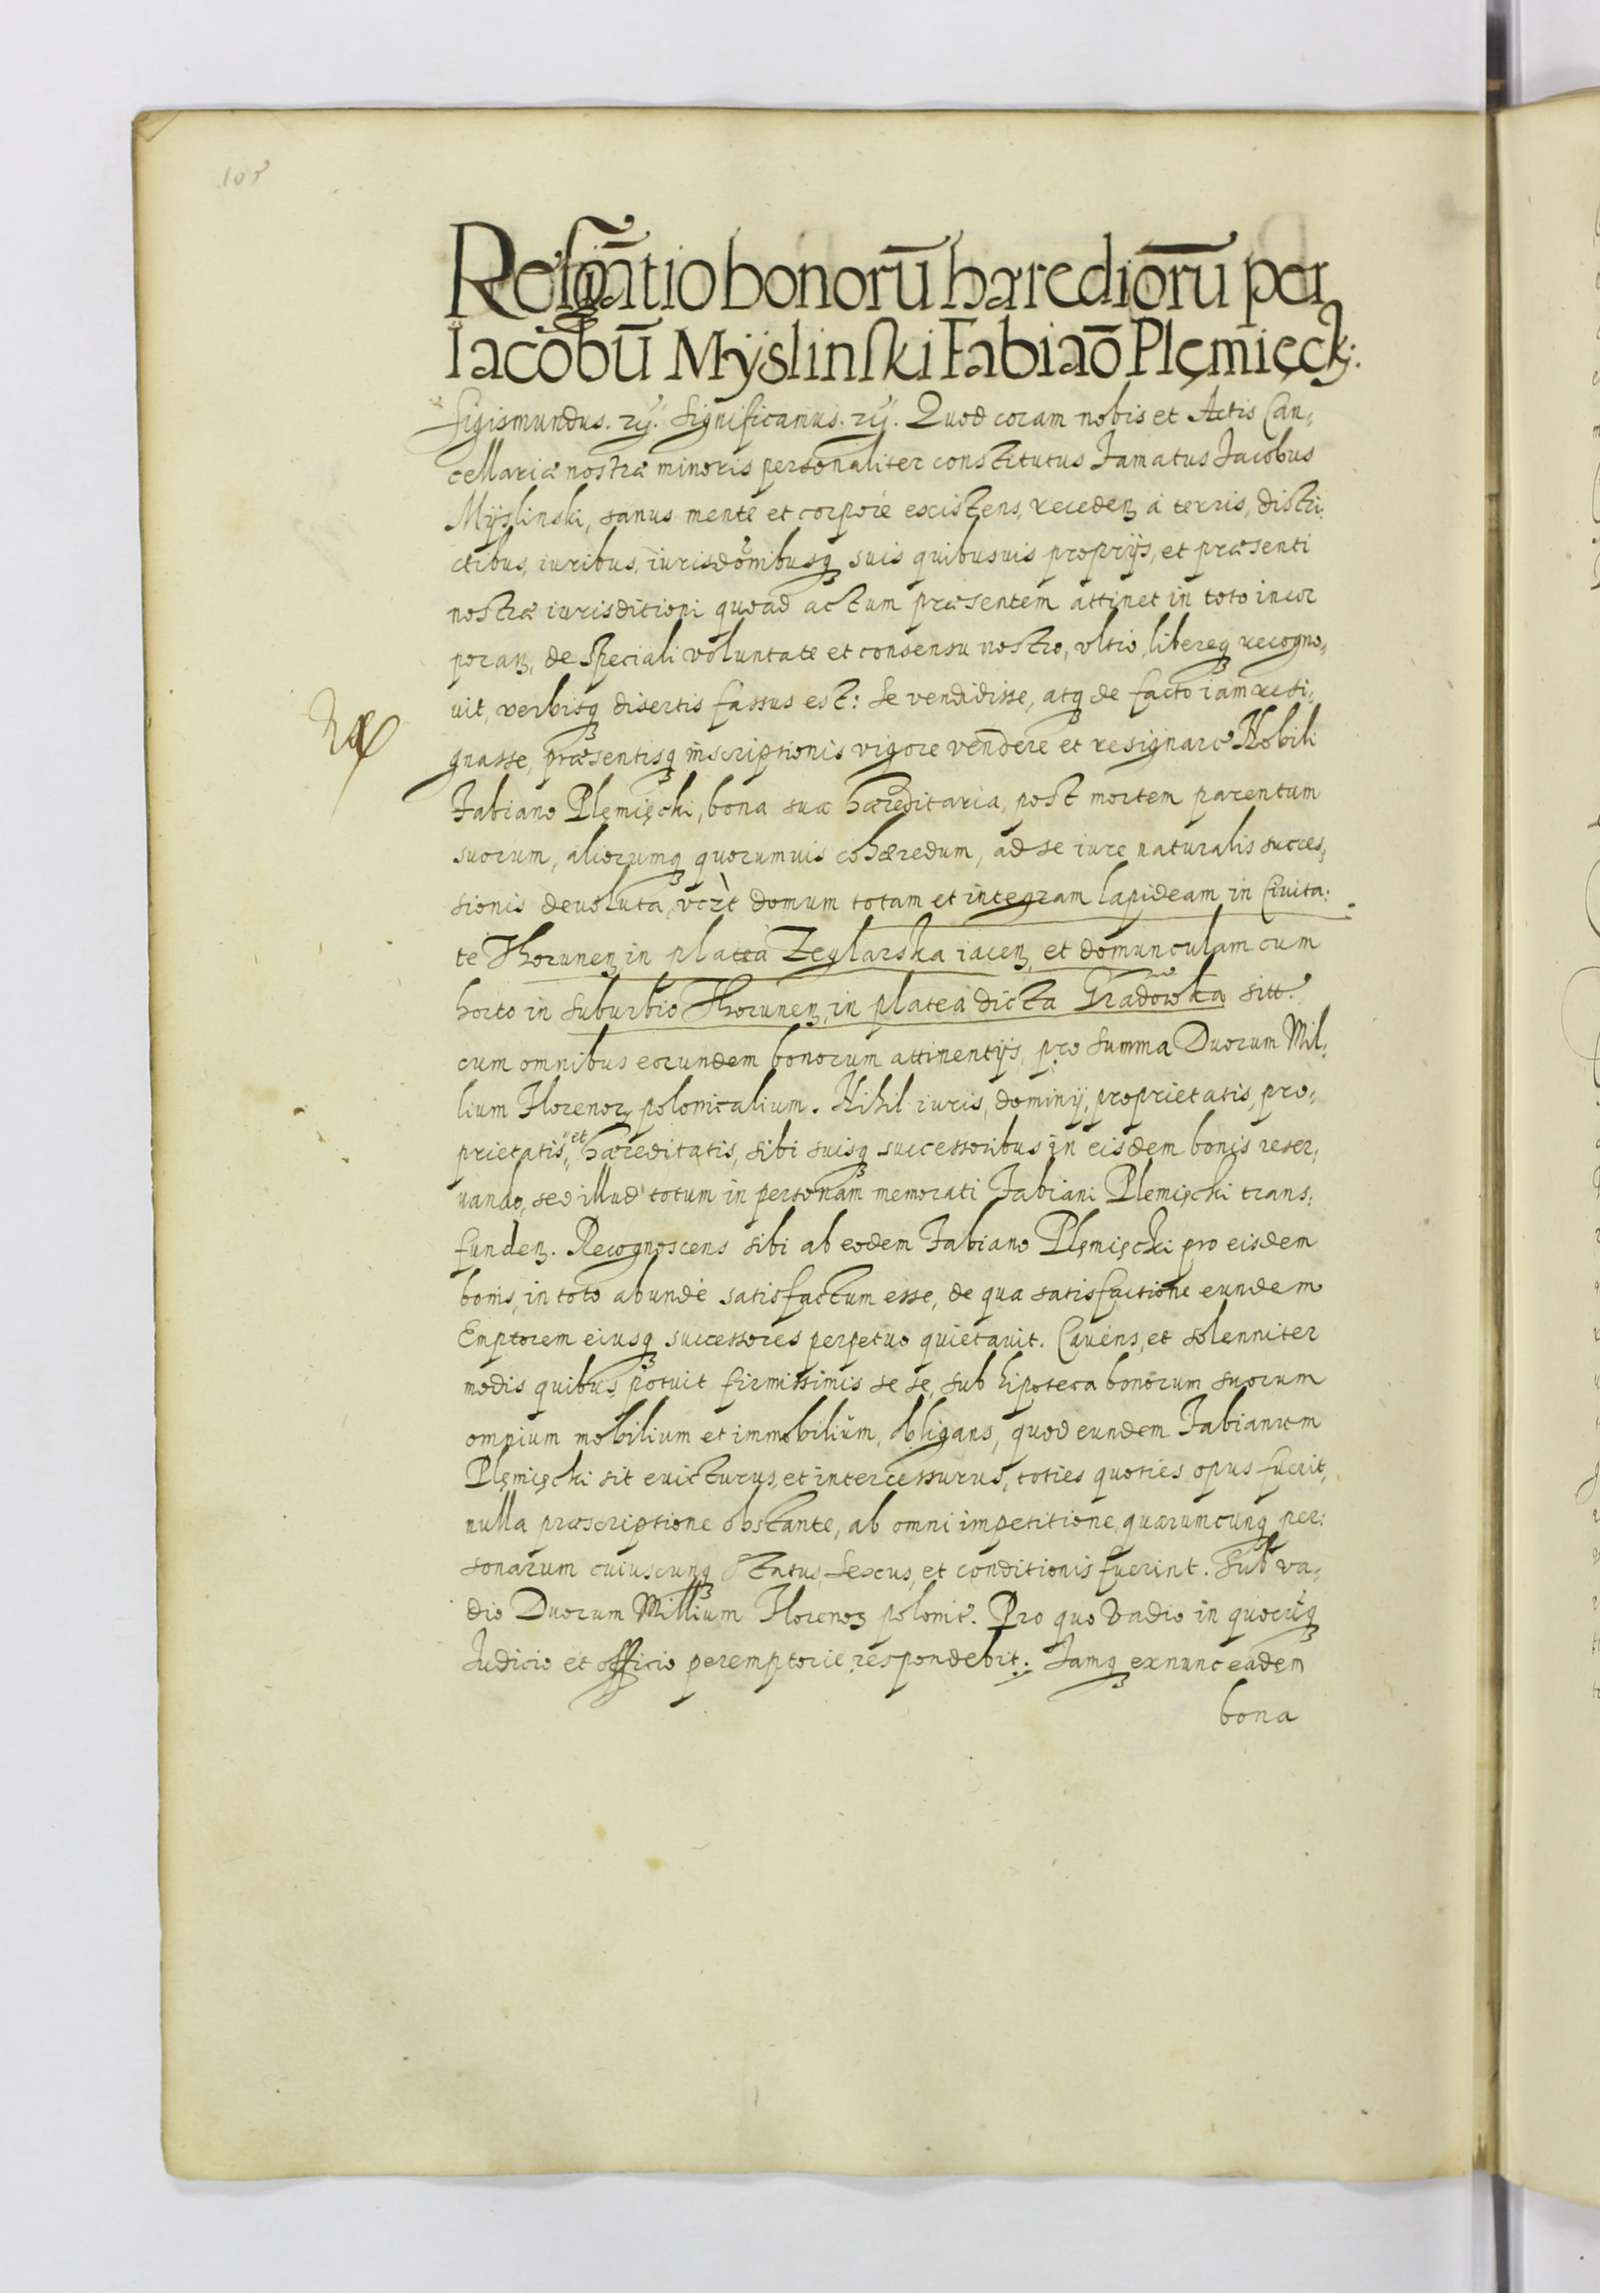 108
Resignãtio bonorũ hærediorũ per
Iacobũ Mÿslinski Fabiaõ Plęmięck:
Sigismundus. rÿ. Significamus. rÿ. Quod coram nobis et Actis Can,
cellariæ nostræ minoris personaliter constitutus Famatus Jacobus
Mÿslinski, sanus mente et corpore existens, recedenʒ à terris, distri,
ctibus, iuribus, iurisdõnibusqʒ suis quibusuis proprijs, et præsenti
nostræ iurisditioni quoad actum præsentem attinet in toto incor
poranʒ, de speciali voluntate et consensu nostro, vltro, libereqʒ recogno,
uit, verbisqʒ disertis fassus est: Se vendidisse, atqʒ de facto iam resi,
gnasse, præsentisqʒ inscriptionis vigore vendere et resignare Nobili
Fabiano Plęmięcki, bona sua hæreditaria, post mortem parentum
suorum, aliorumqʒ quorumuis cohæredum, ad se iure naturalis succes,
sionis devoluta, vczt domum totam et integram lapideam in Ciuita,
te Thorunenʒ in platea Zeglarska iacenʒ, et domunculam cum
horto in suburbio Thorunenʒ, in platea dicta Gradowka sitt.
cum omnibus eorundem bonorum attinentijs, pro summa Duorum Mil,
lium Florenorʒ polonicalium. Nihil iuris, dominij, proprietatis, pro,
prietatis, et hæreditatis, sibi suisqʒ successoribus in eisdem bonis reser,
uando, sed illud totum in personam memorati Fabiani Plemięcki trans,
fundenʒ. Recognoscens sibi ab eodem Fabiano Plęmięcki pro eisdem
bonis, in toto abundè satisfactum esse, de qua satisfactione eundem
Emptorem eiusqʒ successores perpetuo quietauit. Cauens, et solenniter
modis quibus potuit firmissimis se se, sub hipoteca bonorum suorum
omnium mobilium et immobilium, obligans, quod eundem Fabianum
Plęmięcki sit euicturus, et intercessurus, toties quoties opus fuerit,
nulla præscriptione obstante, ab omni impetitione, quarumcunqʒ per,
sonarum cuiuscunqʒ status, sexus, et conditionis fuerint. Sub va,
dio Duorum Millium Florenorʒ polonic. Pro quo Vadio in quocũqʒ
Iudicio et officio peremptorie respondebit. Iamqʒ exnunc eadem
bona